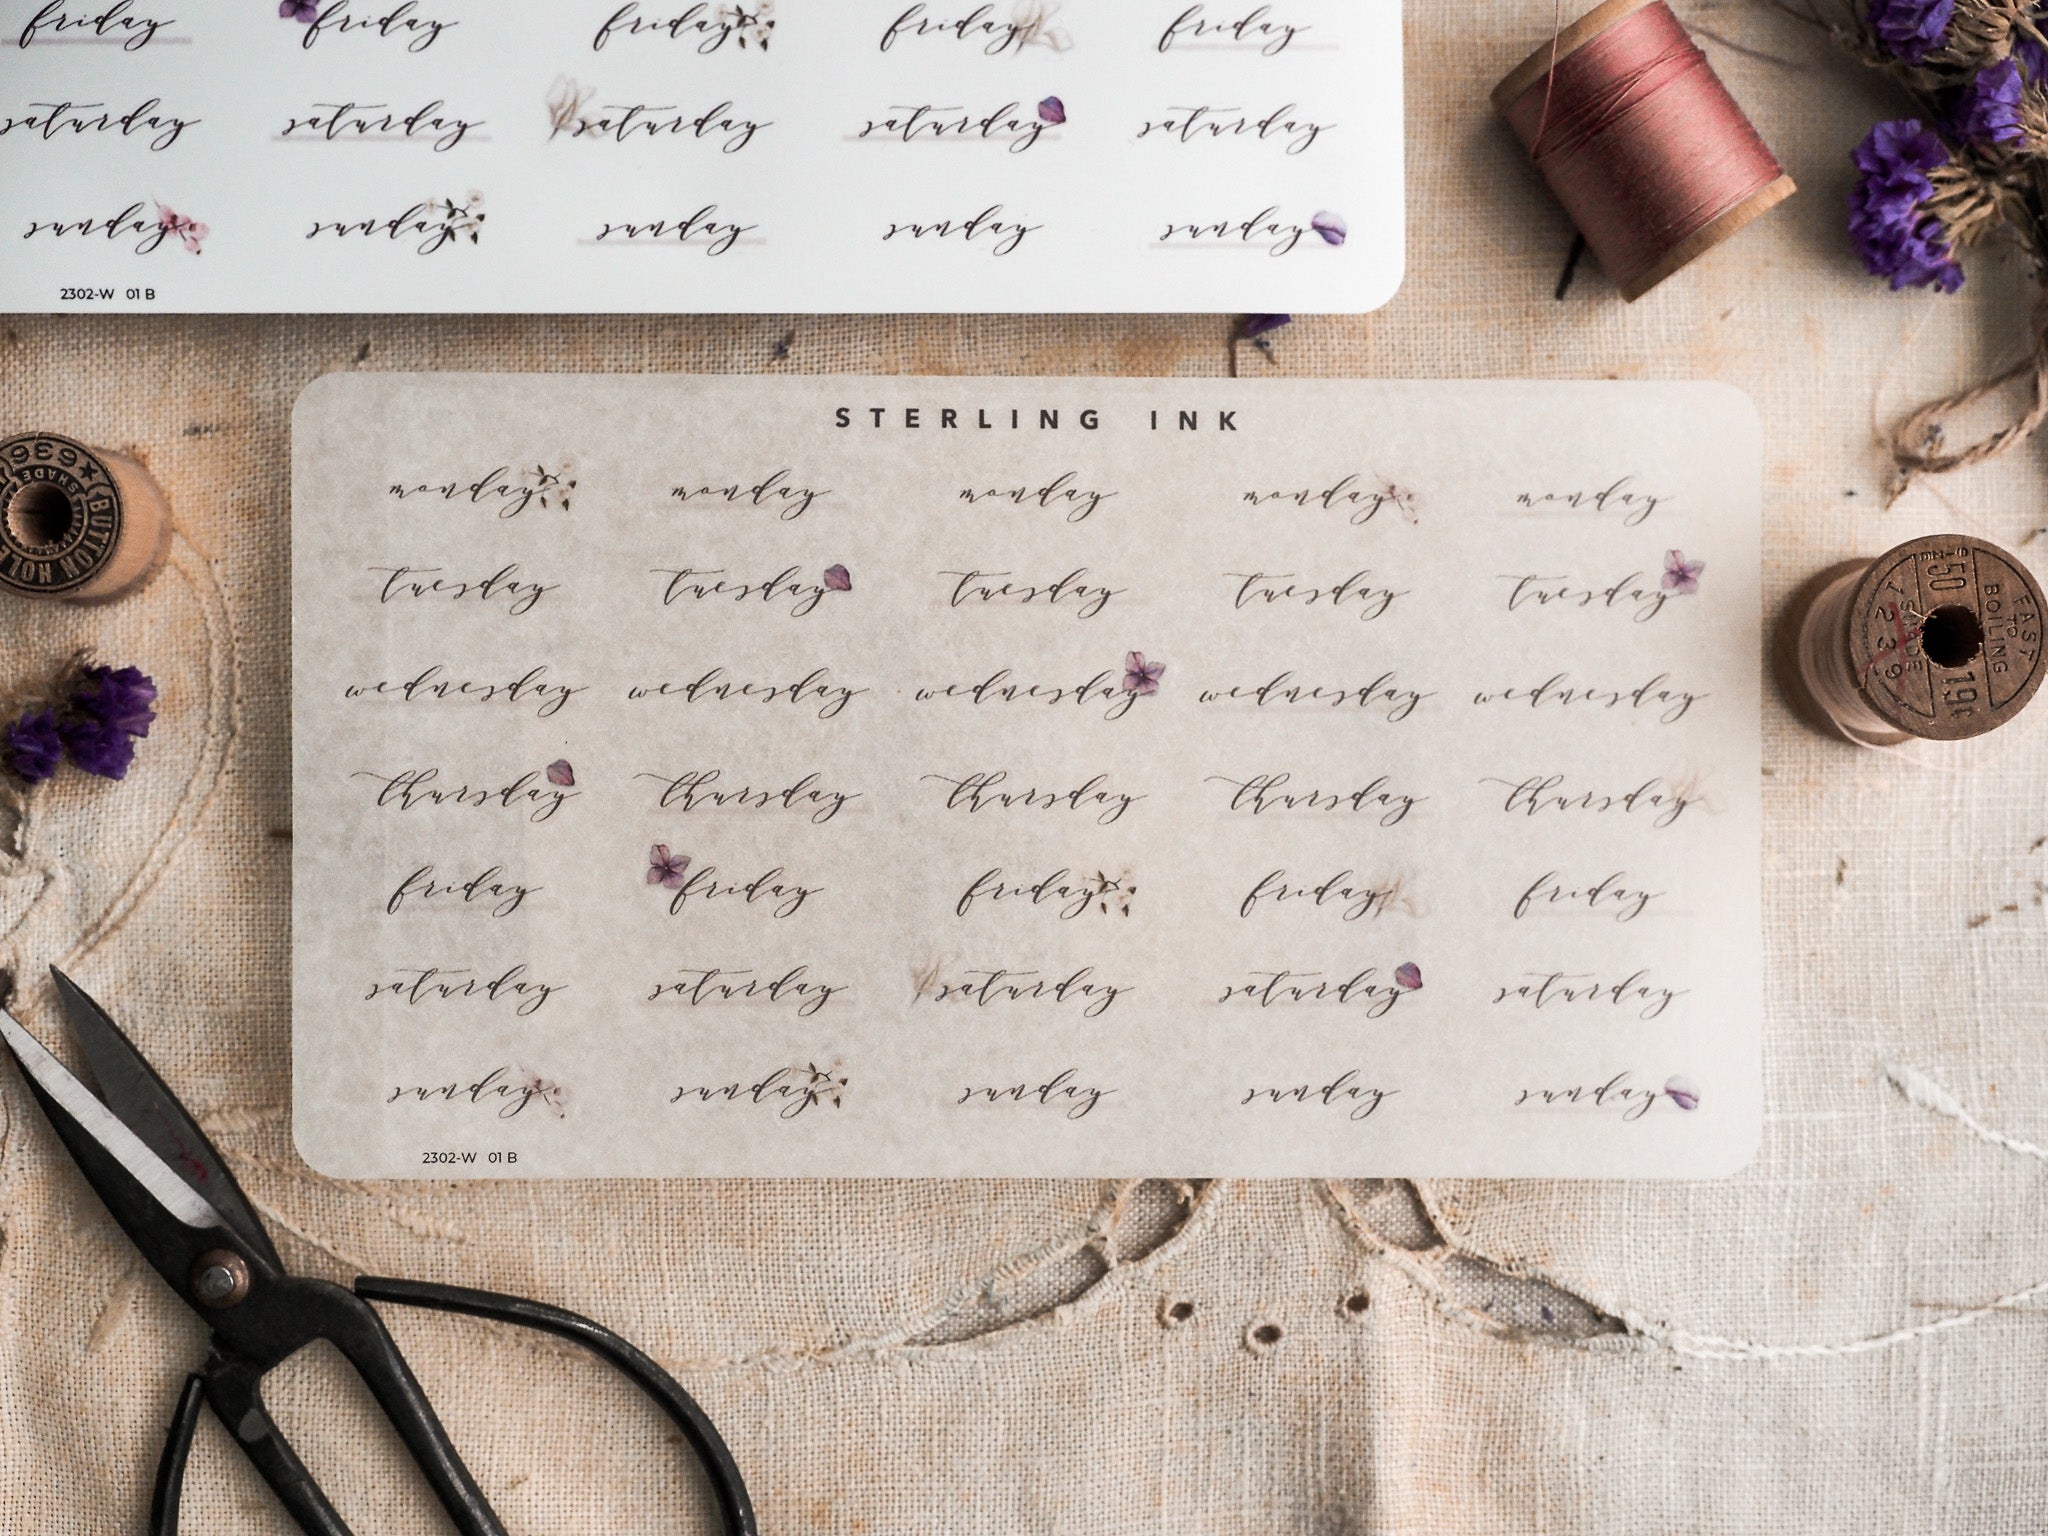 friday friday friday friday friday
saturday saturday saturday saturday saturday
sunday sunday sunday sunday sunday
2302-W 01 B
STERLING INK
monday monday monday monday monday
tuesday tuesday tuesday tuesday tuesday
wednesday wednesday wednesday wednesday wednesday
thursday thursday thursday thursday thursday
friday friday friday friday friday
saturday saturday saturday saturday saturday
sunday sunday sunday sunday sunday
2302-W 01 B
636
SHADE
BUTTON HOLE
50
SHADE
1239
FAST
TO
BOILING